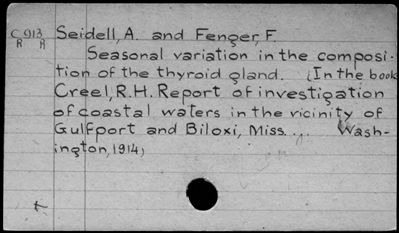 C 913 Seidell, A. and Fenger, F.
R R
Seasonal variation in the composi-
tion of the thyroid gland. (In the book
Creel, R.H. Report of investigation
of coastal waters in the vicinity of
Gulfport and Biloxi, Miss.... Wash-
ington, 1914)